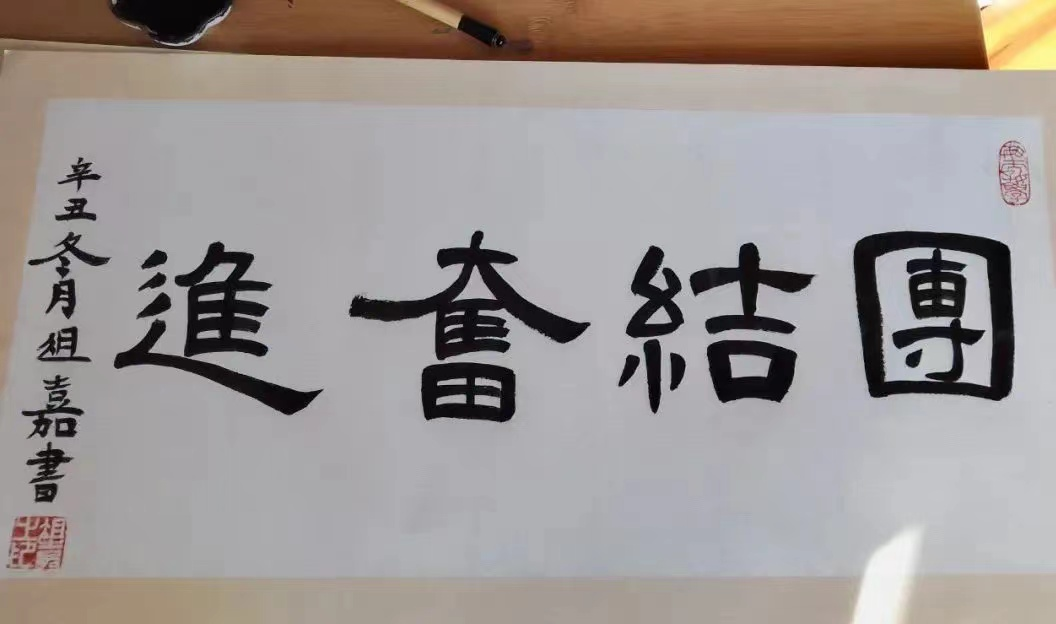 團結奮進
辛丑冬月祖嘉書